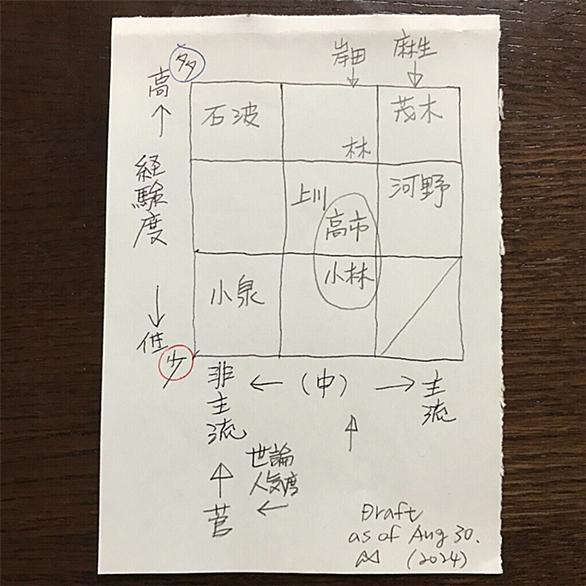 多
岸田
麻生
高
石波
茂木
林
経験度
上川
河野
高市
小泉
小林
低
少
非主流
(中)
主流
世論
人気度
菅
Draft
as of Aug 30.
(2024)